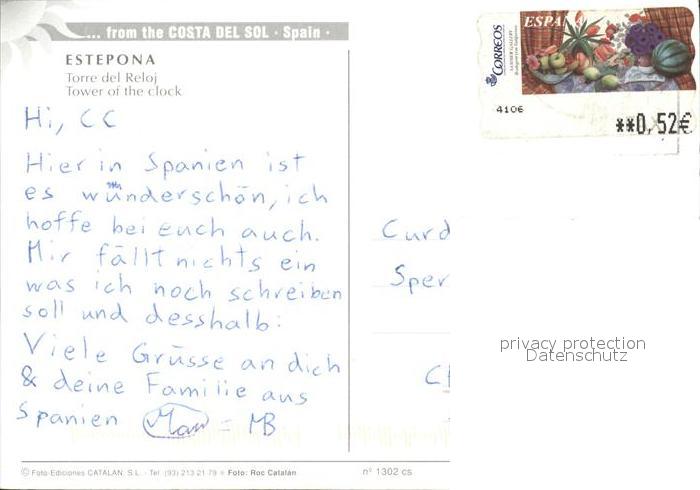 ... from the COSTA DEL SOL · Spain ·
ESTEPONA
Torre del Reloj
Tower of the clock
Hi, CC
Hier in Spanien ist
es wünderschön, ich
hoffe bei euch auch.
Mir fällt nichts ein
was ich noch schreiben
soll und desshalb:
Viele Grüsse an dich
& deine Familie aus
Spanien = MB
CORREOS
ESPAÑA
4106
**0,52€
Curd
Sper
privacy protection
Datenschutz
© Foto-Ediciones CATALAN, S.L. - Tel. (93) 213 21 79 • Foto: Roc Catalán
nº 1302 cs